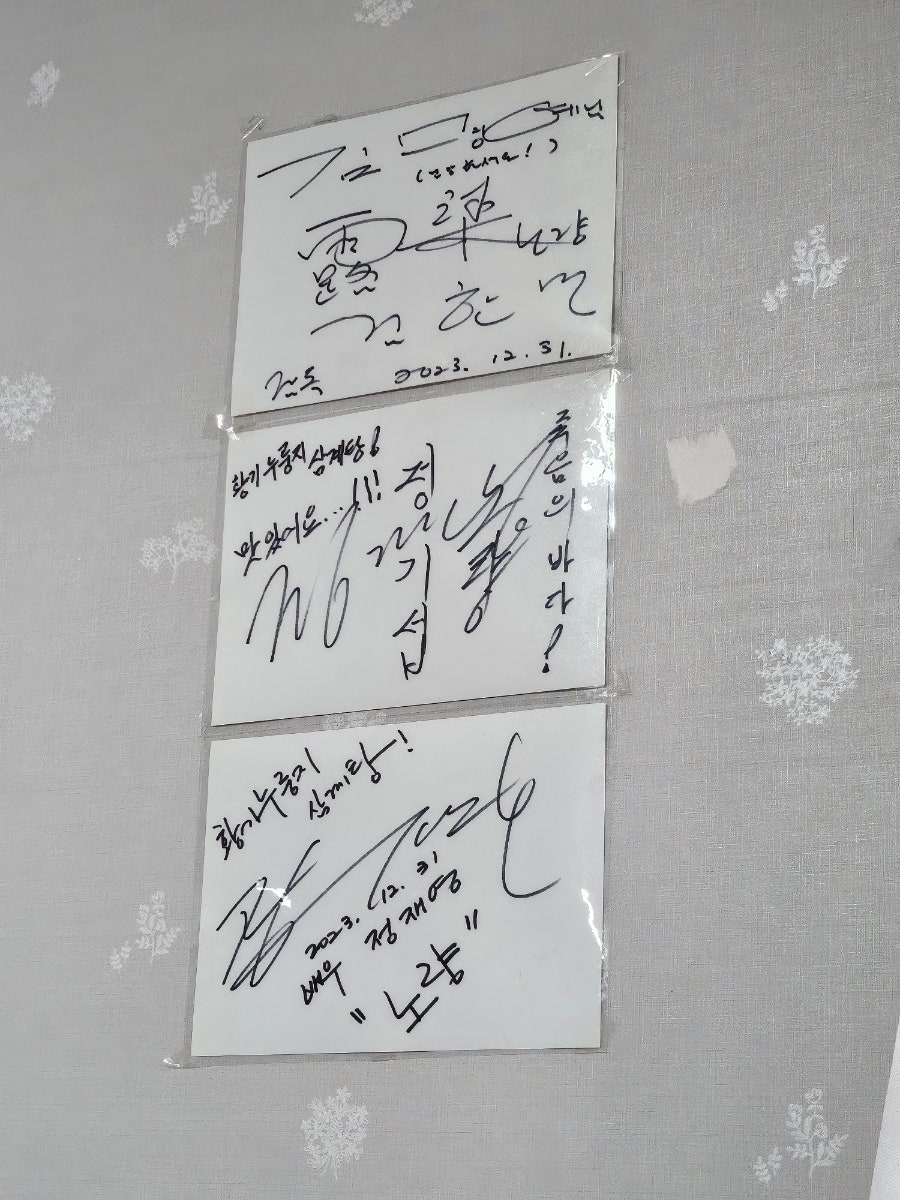 (건강하세요!)
露梁 노량
김한민
감독 2023. 12. 31.
황기 누룽지 삼계탕
맛있어요...!!!
정기섭
노량
죽음의 바다!
황기누룽지
삼계탕!
2023. 12. 31
배우 정재영
"노량"